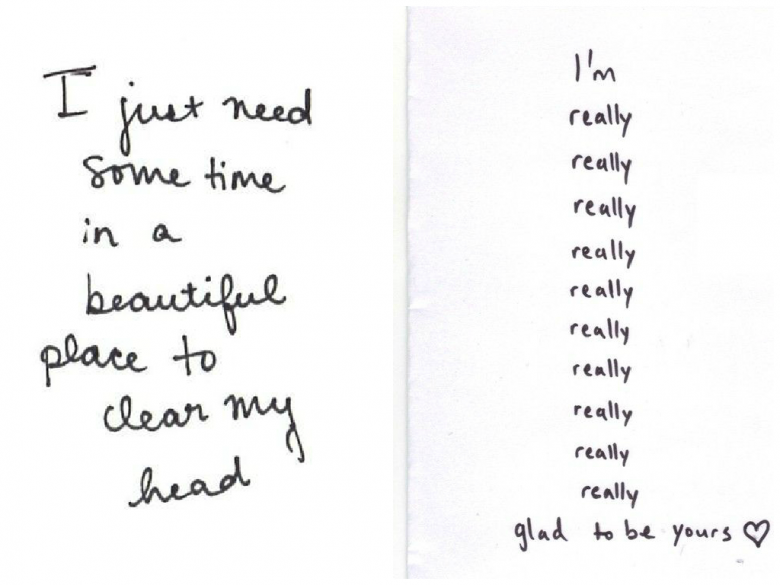 I just need
some time
in a
beautiful
place to
clear my
head
I'm
really
really
really
really
really
really
really
really
really
really
glad to be yours ♡